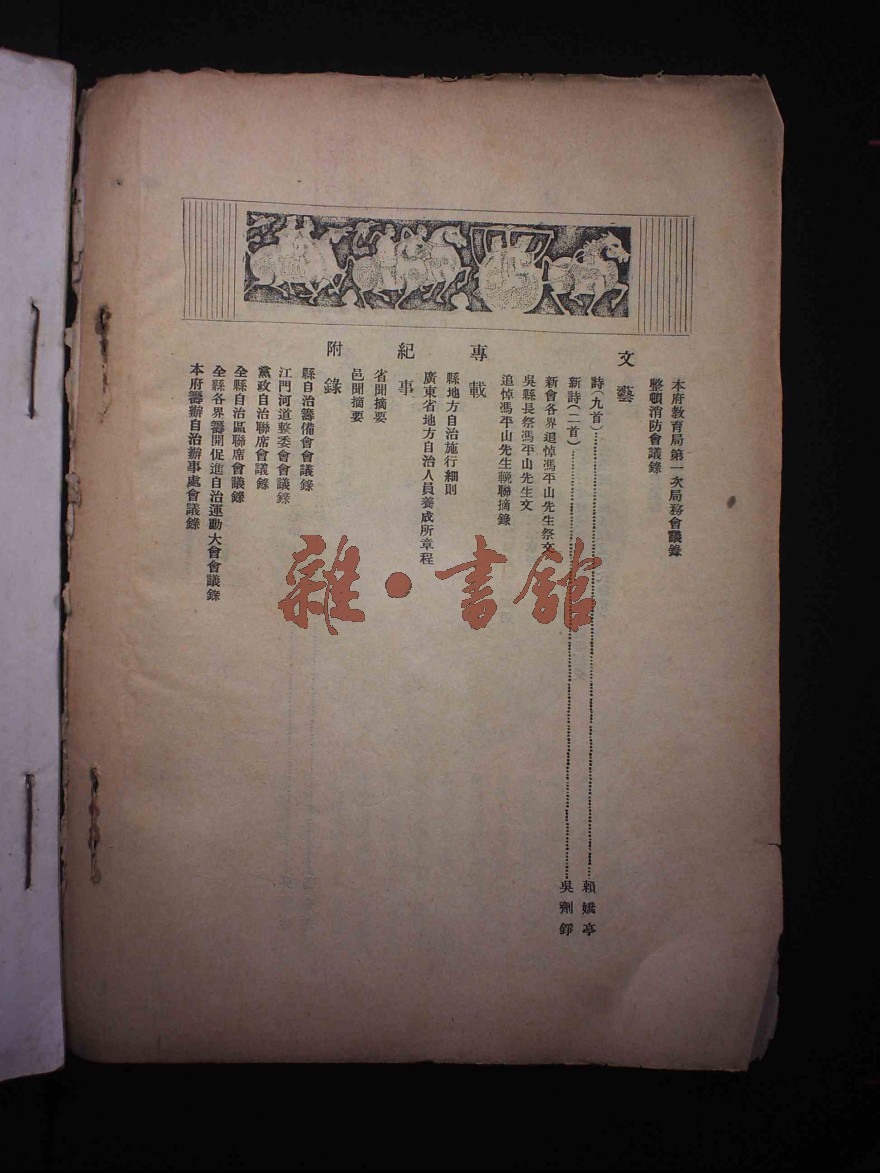 本府教育局第一次局務會議錄
整頓消防會議錄
文藝
詩(九首)……賴嬌亭
新詩(二首)……吳劑錚
新會各界追悼馮平山先生祭文
吳縣長祭馮平山先生文
追悼馮平山先生輓聯摘錄
專載
縣地方自治施行細則
廣東省地方自治人員養成所章程
紀事
省聞摘要
邑聞摘要
附錄
縣自治籌備會會議錄
江門河道整委會會議錄
黨政自治聯席會議錄
全縣自治區聯席會議錄
全縣各界籌開促進自治運動大會會議錄
本府籌辦自治辦事處會議錄
雜·書館